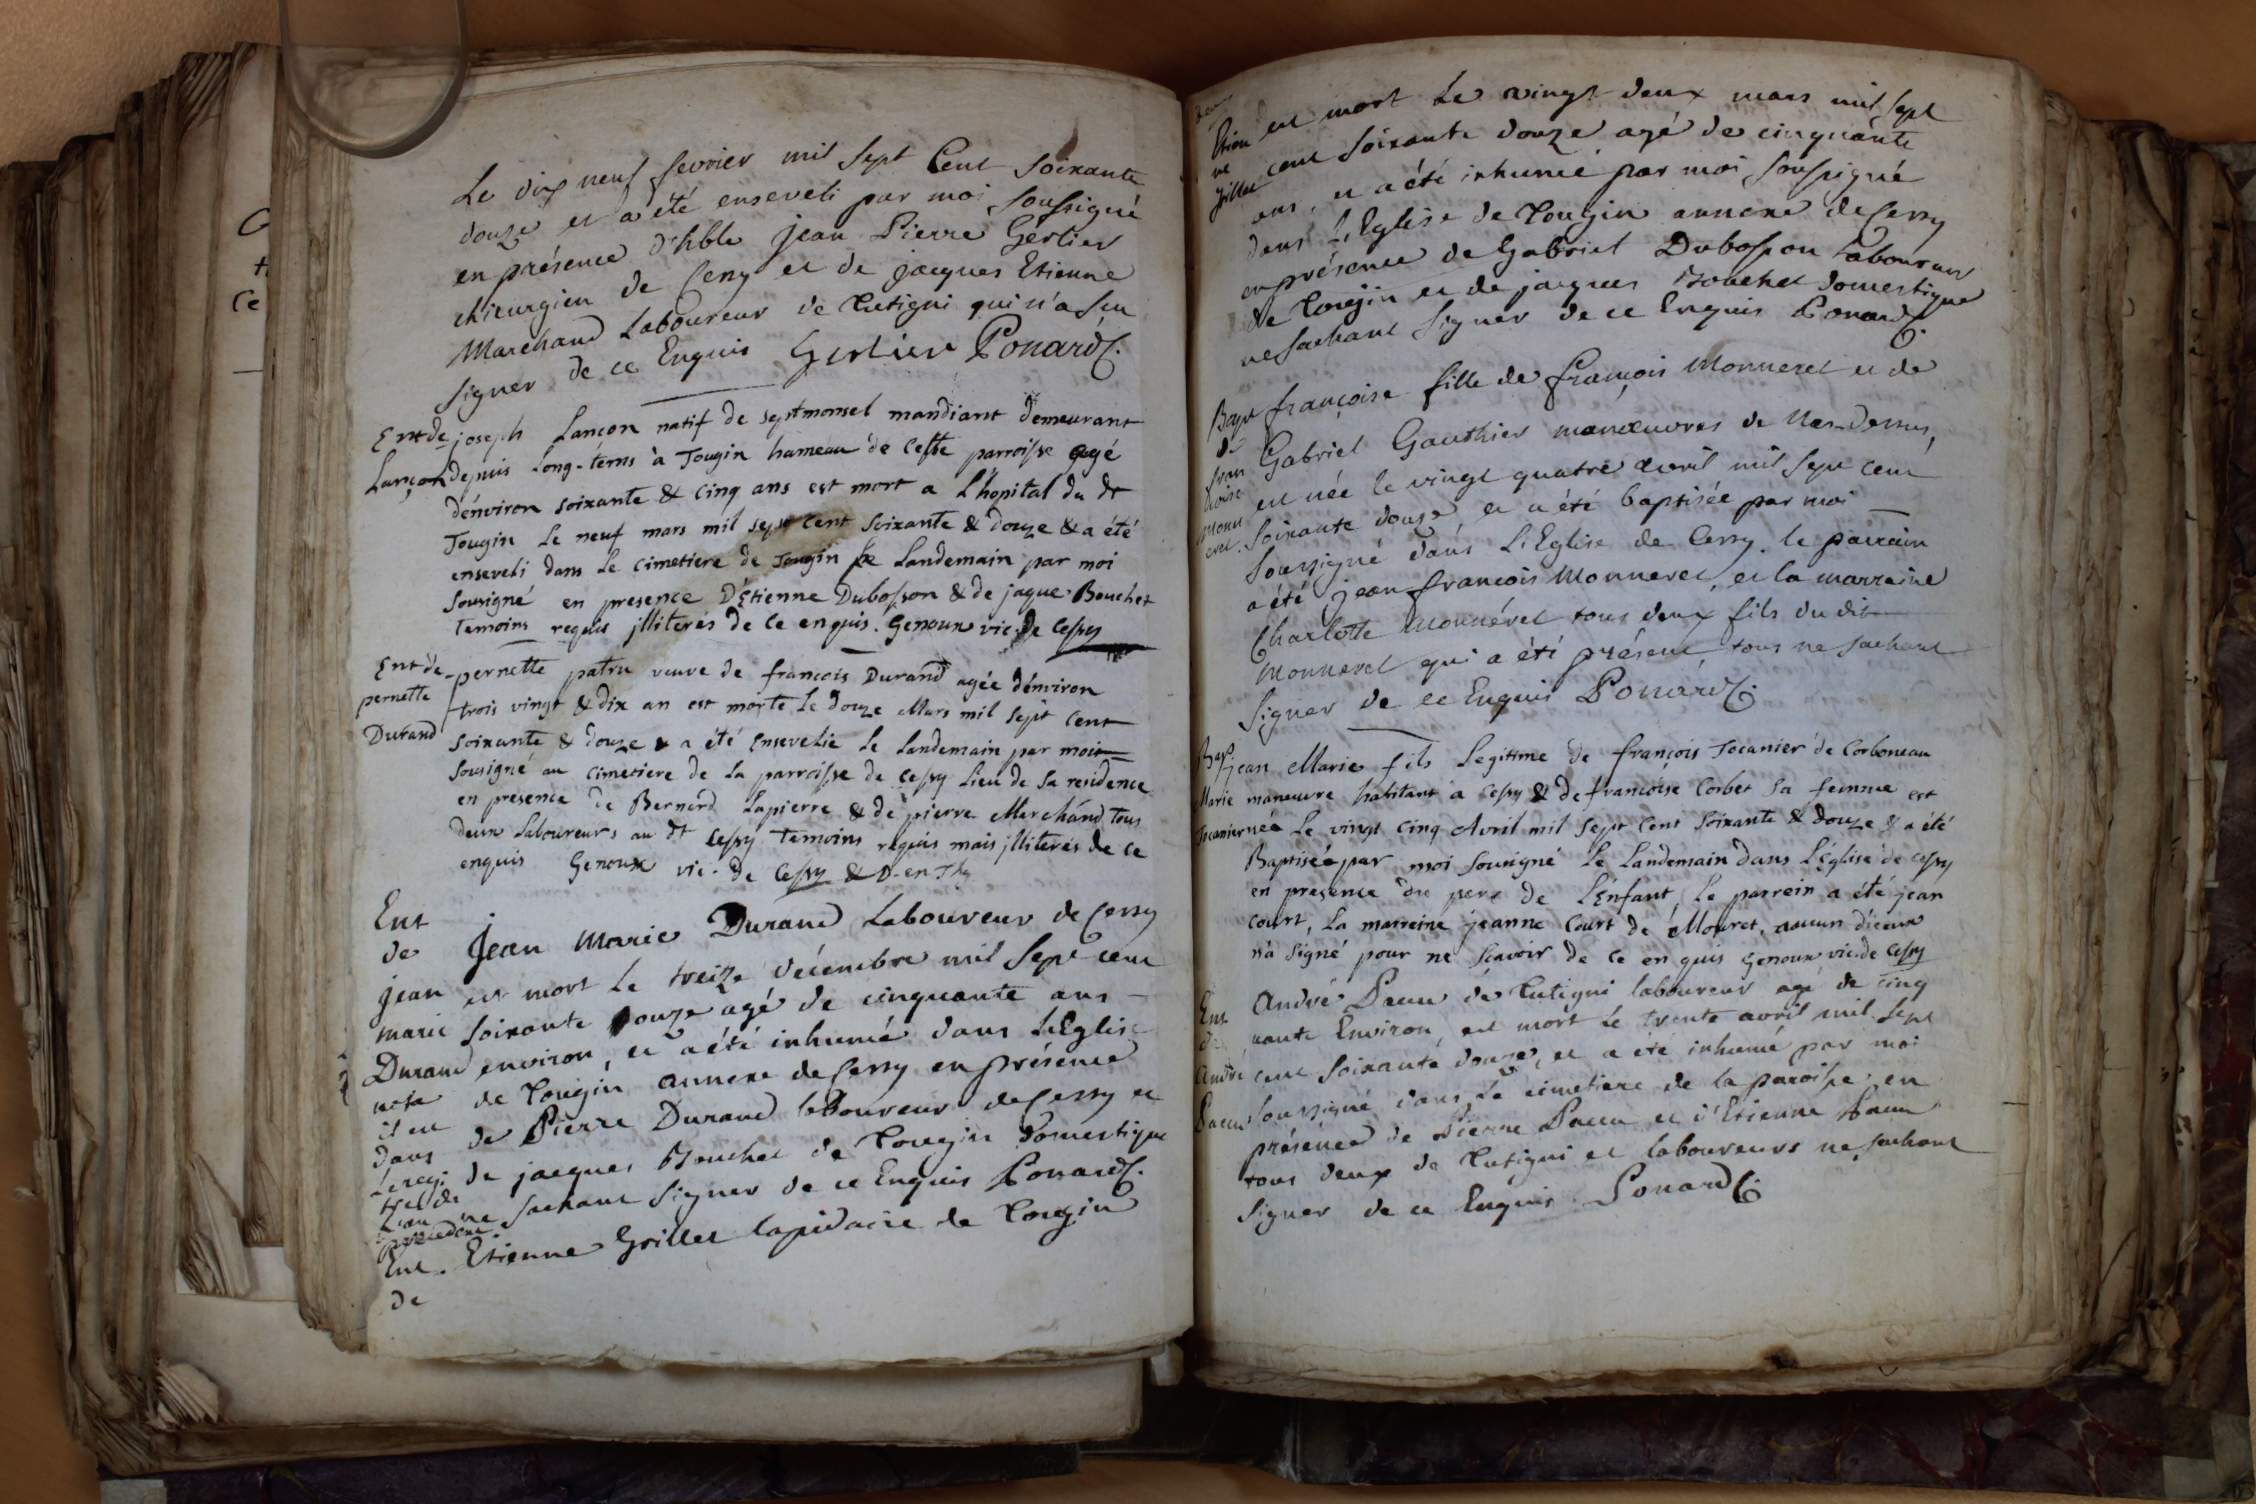 Le dix neuf fevrier mil sept Cent soixante
douze et a été enseveli par moi soussigné
en présence d'hble jean Pierre Gerlier
chirurgien de Cessy et de jacques Etienne
Marchand Laboureur de Tutigni qui n'a seu
signer de ce Enquis Gerlier Ponard C.
Ent de joseph Lançon natif de septmonsel mandiant demeurant
Lançon depuis long-tems à Tougin hameau de Cette parroisse agé
d'énviron soixante & cinq ans est mort a L'hopital du dt
Tougin Le neuf mars mil sept Cent soixante & douze & a été
enseveli dans Le cimetiere de Tougin Le Landemain par moi
sousigné en presence D'Étienne Dubosson & de jaque Bouchet
temoins requis jlliterés de Ce enquis. Genoux vic. de Cessy
Ent de pernette patru veuve de francois Durand agée d'énviron
pernette trois vingt & dix an est morte Le douze Mars mil sept Cent
Durand soixante & douze & a été Ensevelie Le Landemain par moi
sousigné au Cimetiere de La parroisse de Cessy Lieu de sa residence
en presence de Bernard Lapierre & de pierre Marchand Tous
deux Laboureurs au dt Cessy temoins requis mais jlliterés de ce
enquis Genoux vic. de Cessy & D. en Thg
Ent
de Jean Marie Durand Laboureur de Cessy
jean est mort le treize décembre mil sept cent
marie soixante douze agé de cinquante ans
Durand environ, et a été inhumé dans L'Eglise
nota de Tougin annexe de Cessy en présence
il est de Pierre Durand laboureur de Cessy et
dans de jacques Bouchet de Tougin domestique
Le regi
tre de
L'an ne sachant signer de ce Enquis Ponard C.
précedent.
Ent. Etienne Grillet lapidaire de Tougin
de
Etien est mort le vingt deux mars mil sept
ne cent soixante douze agé de cinquante
grillet ans, et a été inhumé par moi soussigné
dans L'Eglise de Tougin annexe de Cessy
en présence de Gabriel Dubosson Laboureur
de Tougin et de jacques Bouchet domestique
ne sachant signer de ce Enquis Ponard C.
Bapt françoise fille de françois Monneret et de
de Gabriel Gauthier manœuvres de
fran
çoise est née le vingt quatre avril mil sept cent
monn
eret. soixante douze et a été baptisée par moi
soussigné dans L'Eglise de Cessy. le parrain
a été jean françois Monneret, et la marraine
Charlotte Monnéret tous deux fils du dit
Monneret qui a été présent, tous ne sachant
signer de ce Enquis Ponard C.
Bap. jean Marie fils Legitime de françois Tocanier de Corboneau
Marie maneuvre habitant a Cessy & de francoise Corbet sa femme est
Tocanier née Le vingt Cinq Avril mil sept Cent soixante & douze & a été
Baptisée par moi sousigné Le Landemain dans L'Église de Cessy
en presence du pere de L'Enfant, Le parrein a été jean
Court, La marreine jeanne Court de Mouret, aucun d'ieux
n'a signé pour ne scavoir de Ce en quis Genoux vic. de Cessy
Ent André Pacui de Tutigni laboureur agé de cinq
de uante Environ, est mort le trente avril mil sept
André cent soixante douze, et a été inhumé par moi
Pacui soussigné dans le cimetiere de la paroisse en
présence de Pierre Pacui et d'Etienne Pacui
tous deux de Tutigni et laboureurs ne sachant
signer de ce Enquis Ponard C.